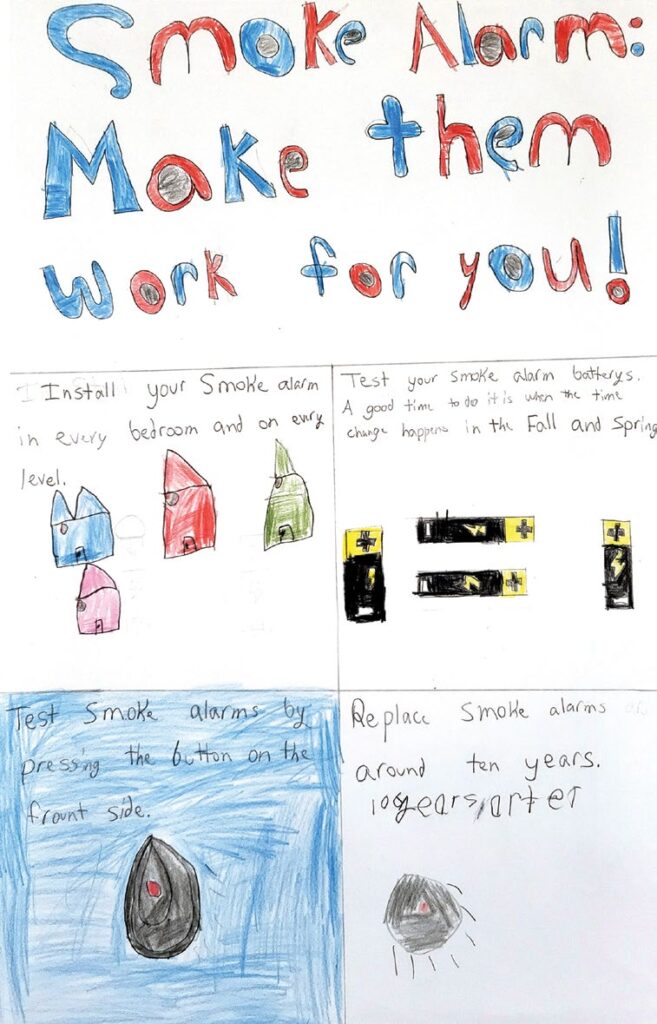 Smoke Alarm:
Make them
work for you!
Install your Smoke alarm
in every bedroom and on every
level.
Test your smoke alarm batterys.
A good time to do it is when the time
change happens in the Fall and Spring
Test Smoke alarms by
pressing the button on the
frount side.
Replace Smoke alarms
around ten years.
10 years arter